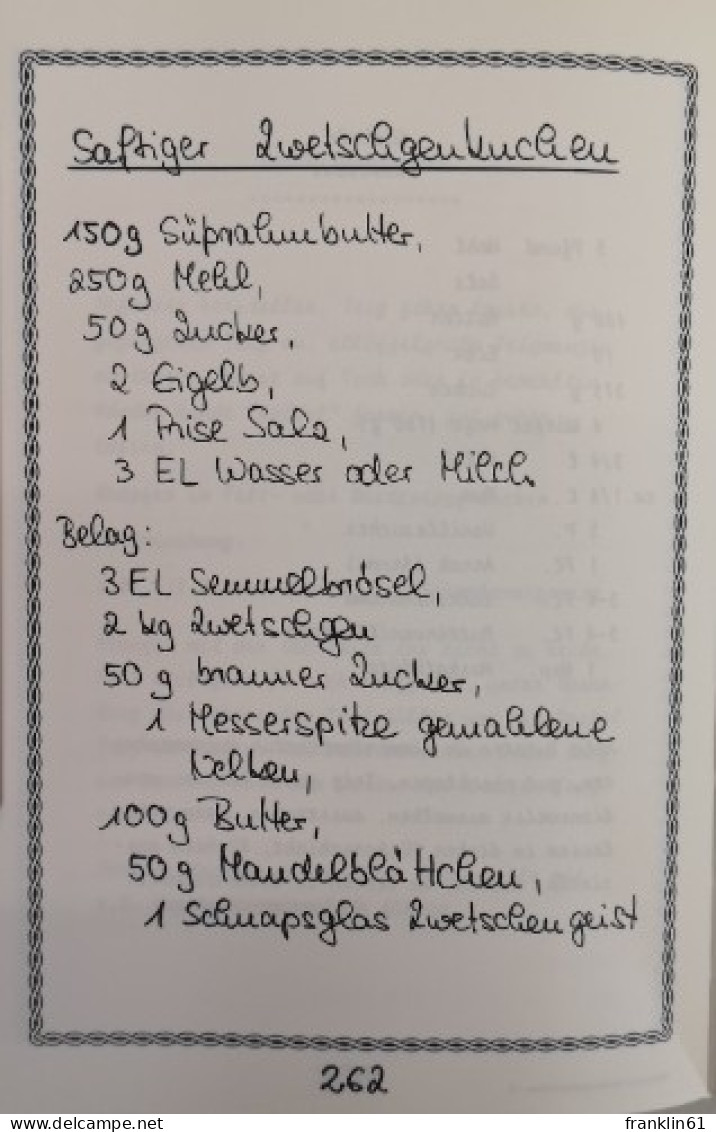 Saftiger Zwetschgenkuchen
150g Süßrahmbutter,
250g Mehl,
50g Zucker,
2 Eigelb,
1 Prise Salz,
3 EL Wasser oder Milch.
Belag:
3 EL Semmelbrösel,
2 kg Zwetschgen
50 g brauner Zucker,
1 Messerspitze gemahlene
Nelken,
100g Butter,
50g Mandelblättchen,
1 Schnapsglas Zwetschengeist
262
www.delcampe.net
franklin61